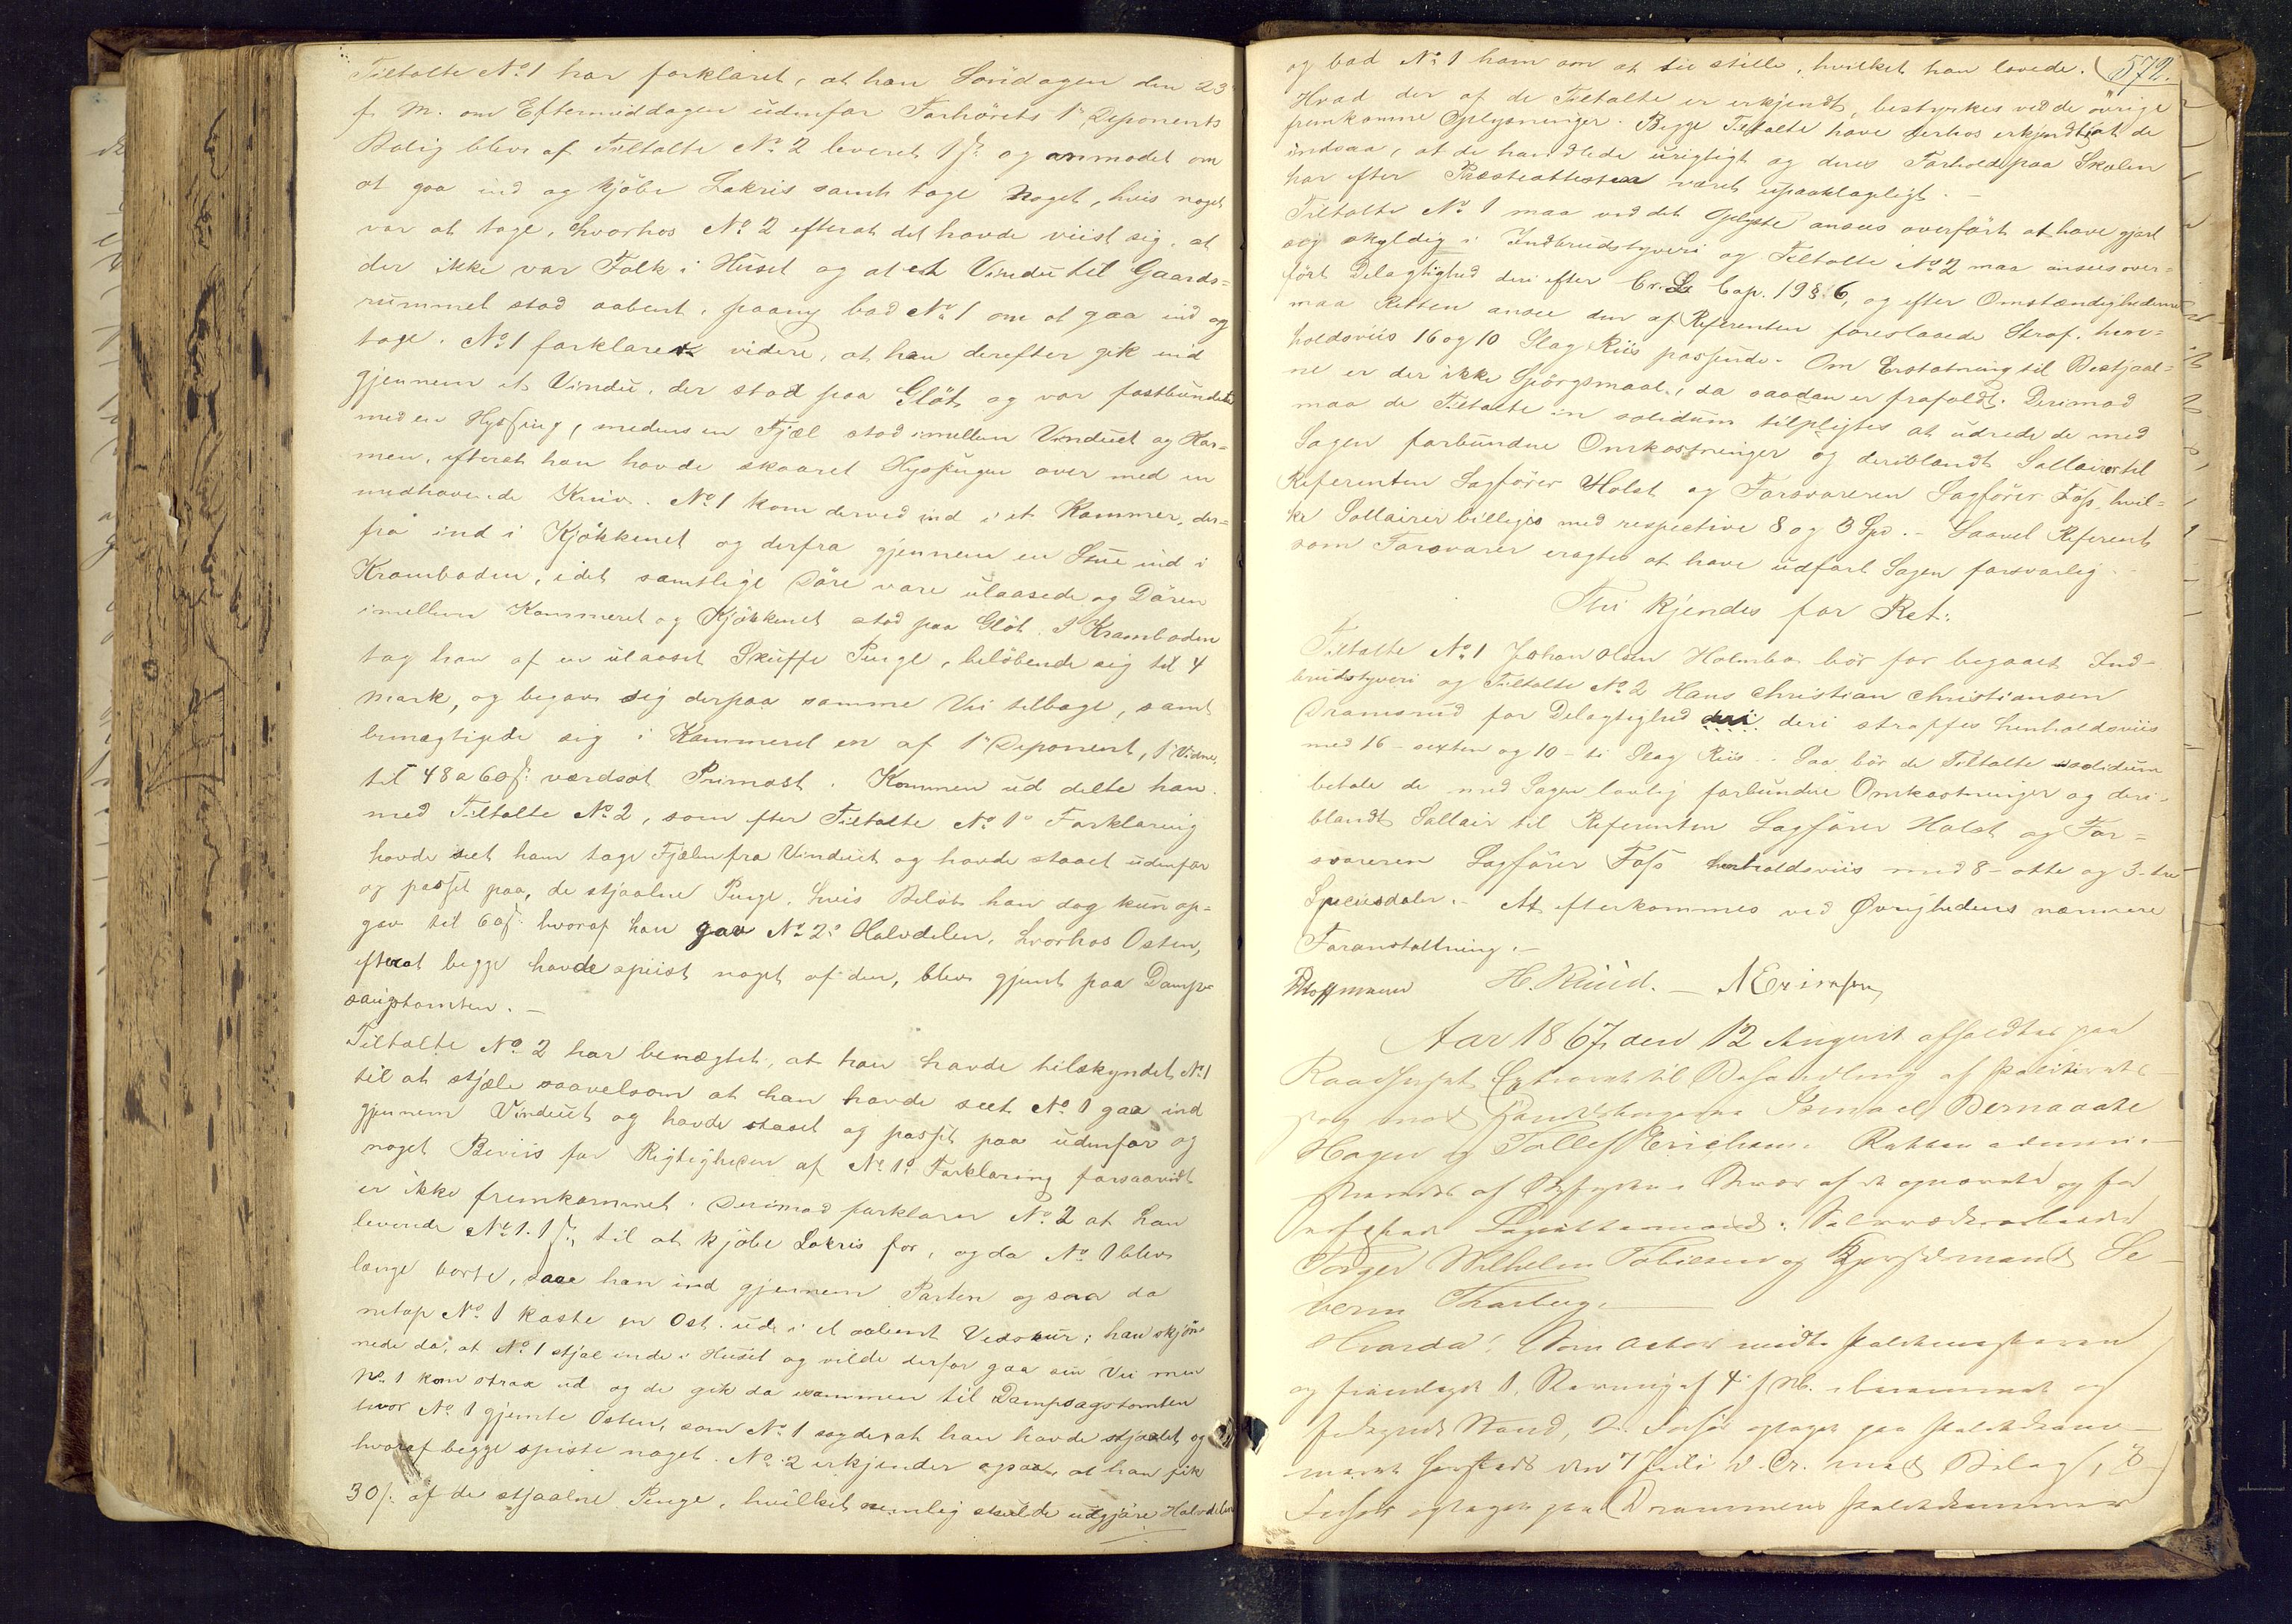 Tiltalte No 1 har forklaret, at han Søndagen den 23de
f. M. om Eftermiddagen udenfor Forhørets 1ste Deponents
Bolig blev af Tiltalte No 2 leveret 1 s. og anmodet om
at gaa ind og kjøbe Lakris samt tage noget, hvis noget
var at tage, hvorhos No 2 efterat det havde viist sig, at
der ikke var Folk i Huset og at et Vindu til Gaards-
rummet stod aabent, paany bad No 1 om at gaa ind og
tage. No 1 forklarer videre, at han derefter gik ind
gjennem et Vindu, der stod paa Gløt og var fastbundet
med en Hyssing, medens en Fjæl stod imellem Vinduet og Kar-
men, efterat han havde skaaret Hyssingen over med en
medhavende Kniv. No 1 kom derved ind i et Kammer, der-
fra ind i Kjøkkenet og derfra gjennem en Stue ind i
Kramboden, idet samtlige Døre vare ulaasede og Døren
imellem Kammeret og Kjøkkenet stod paa Gløt. I Kramboden
tog han af en ulaaset Skuffe Penge, beløbende sig til 4
Mark, og begav sig derpaa samme Vei tilbage, samt
bemægtigede sig i Kammeret en af 1ste Deponent, 1ste Vidne,
til 48 a 60 s. værdsat Primost. Kommen ud delte han
med Tiltalte No 2, som efter Tiltalte No 1s Forklaring
havde seet ham tage Fjælen fra Vinduet og havde staaet udenfor
og passet paa, de stjaalne Penge, hvis Beløb han dog kun op-
gav til 60 s. hvoraf han gav No 2 Halvdelen, hvorhos Osten,
efterat begge havde spiist noget af den, blev gjemt paa Damp-
saugtomten. —
Tiltalte No 2 har benægtet, at han havde tilskyndet No 1
til at stjæle saavelsom at han havde seet No 1 gaa ind
gjennem Vinduet og havde staaet og passet paa udenfor og
noget Beviis for Rigtigheden af No 1s Forklaring forsaavidt
er ikke fremkommet. Derimod forklarer No 2 at han
leverede No 1 1 s. til at kjøbe Lakris for, og da No 1 blev
længe borte, saae han ind gjennem Porten og saa da
netop No 1 kaste en Ost ud i et aabent Vedskur; han skjøn-
nede da, at No 1 stjal inde i Huset og vilde derfor gaa sin Vei men
No 1 kom strax ud og de gik da sammen til Dampsagstomten
hvor No 1 gjemte Osten, som No 1 sagde, at han havde stjaalet og
hvoraf begge spiste noget. No 2 erkjender ogsaa, at han fik
30 s. af de stjaalne Penge, hvilket nemlig skulde udgjøre Halvdelen
572.
og bad No 1 ham om at tie stille, hvilket han lovede.
Hvad der af de Tiltalte er erkjendt, bestyrkes ved de øvrige
fremkomne Oplysninger. Begge Tiltalte have derhos erkjendt, at de
indsaa, at de handlede urigtigt og deres Forhold paa Skolen
har efter Præsteattester været upaaklageligt. —
Tiltalte No 1 maa ved det Oplyste ansees overført at have gjort
sig skyldig i Indbrudstyveri og Tiltalte No 2 maa ansees over-
ført Delagtighed deri efter Cr. L. Cap. 19 § 6, og efter Omstændighederne
maa Retten ansee den af Referenten foreslaaede Straf, hen-
holdsviis 16 og 10 Slag Riis passende. Om Erstatning til Bestjaal-
ne er der ikke Spørgsmaal, da saadan er frafaldt. Derimod
maa de Tiltalte in solidum tilpligtes at udrede de med
Sagen forbundne Omkostninger og deriblandt Sallairer til
Referenten Sagfører Holst og Forsvareren Sagfører Foss, hvil-
ke Sallairer billiges med respective 8 og 3 Spd. — Saavel Referent
som Forsvarer eragtes at have udført Sagen forsvarlig.
Thi kjendes for Ret:
Tiltalte No 1 Johan Olsen Holmbo bør for begaaet Ind-
brudstyveri og Tiltalte No 2 Hans Christian Christiansen
Dramsrud for Delagtighed deri straffes henholdsviis
med 16 – sexten og 10 – ti Slag Riis. Saa bør de Tiltalte in solidum
betale de med Sagen lovlig forbundne Omkostninger og deri-
blandt Sallair til Referenten Sagfører Holst og For-
svareren Sagfører Foss henholdsviis med 8 – otte og 3 – tre
Speciesdaler. – At efterkommes ved Øvrighedens nærmere
Foranstaltning. —
Hoffmann H. Ruud. — N Ericksen
Aar 1867, den 12 August afholdtes paa
Raadhuset Extraret til Behandling af Politirets-
sag mod Ismael Bernaate
Hagen og Tollef Erichsen. Retten admini-
streredes af Byfogden
Laugrettesmænd:
Torger Wilhelm Tobiesen og Se-
verin Thorberg. —
Hvorda: Som Actor mødte Politimesteren
og fremlagde 1, Stævning af 4 f. M. i berammet og
forkyndt Stand, 2. Forhør optaget paa Politikam-
meret den 7 Juli d. Aar. med Bilag, 3
Forhør optaget paa Drammens Politikammer